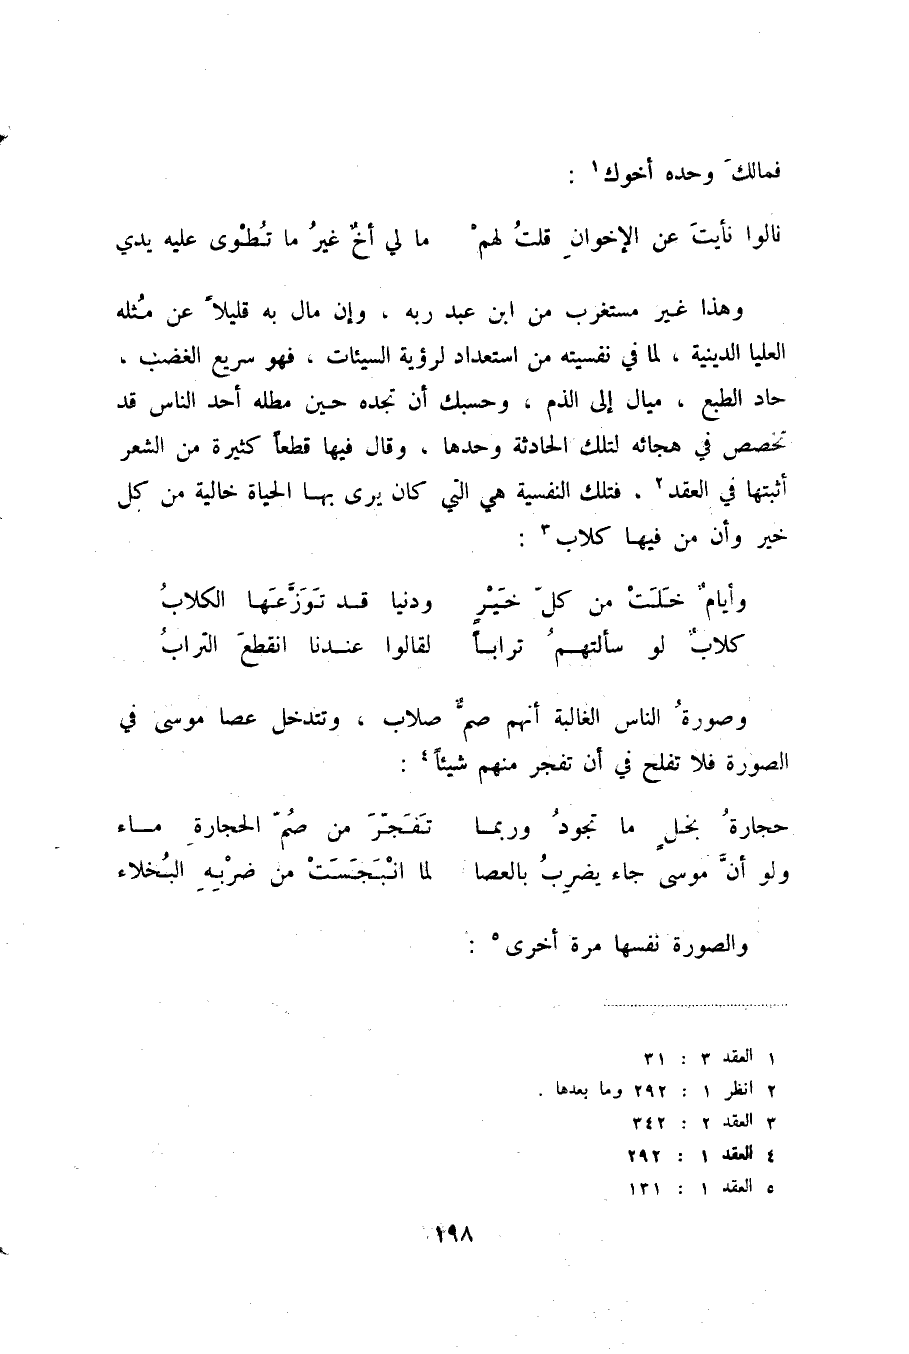 فمالكَ وحده أخوك ١ :
نالوا نأيتَ عن الإخوانِ قلتُ لهمْ ما لي أخٌ غيرُ ما تُطْوى عليه يدي
وهذا غير مستغرب من ابن عبد ربه ، وإن مال به قليلاً عن مُثله
العليا الدينية ، لما في نفسيته من استعداد لرؤية السيئات ، فهو سريع الغضب ،
حاد الطبع ، ميال إلى الذم ، وحسبك أن تجده حين مطله أحد الناس قد
تخصص في هجائه لتلك الحادثة وحدها ، وقال فيها قطعاً كثيرة من الشعر
أثبتها في العقد ٢ . فتلك النفسية هي التي كان يرى بها الحياة خالية من كل
خير وأن من فيها كلاب ٣ :
وأيامٌ خَلَتْ من كلّ خَيْرٍ ودنيا قد تَوَزَّعَها الكلابُ
كلابٌ لو سألتهمُ تراباً لقالوا عندنا انقطعَ الترابُ
وصورةُ الناس الغالبة أنهم صمٌّ صلاب ، وتتدخل عصا موسى في
الصورة فلا تفلح في أن تفجر منهم شيئاً ٤ :
حجارةُ بخلٍ ما تجودُ وربما تَفَجَّرَ من صُمّ الحجارةِ ماء
ولو أنَّ موسى جاء يضرِبُ بالعصا لما انْبَجَسَتْ من ضرْبِهِ البُخلاء
والصورة نفسها مرة أخرى ٥ :
١ العقد ٣ : ٣١
٢ انظر ١ : ٢٩٢ وما بعدها .
٣ العقد ٢ : ٣٤٢
٤ العقد ١ : ٢٩٢
٥ العقد ١ : ١٣١
١٩٨